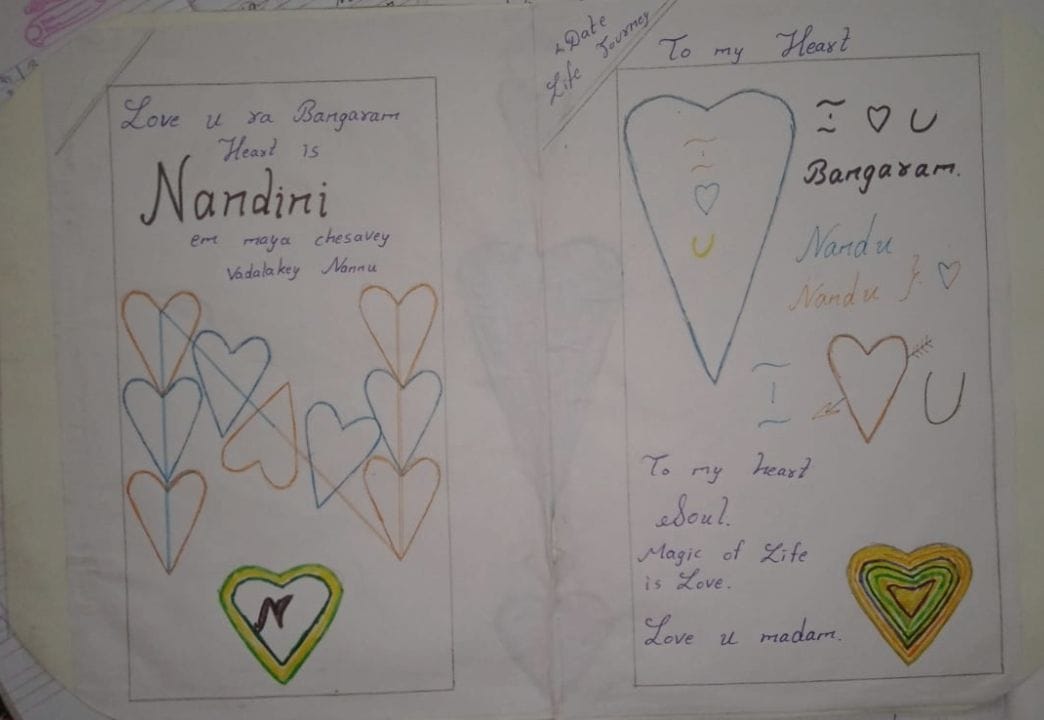 Love u ra Bangaram
Heart is
Nandini
em maya chesavey
Vadalakey Nannu
N
Date
Life Journey
To my Heart
I
U
I ♡ U
Bangaram.
Nandu
Nandu } ♡
I U
To my heart
Soul.
Magic of Life
is Love.
Love u madam.